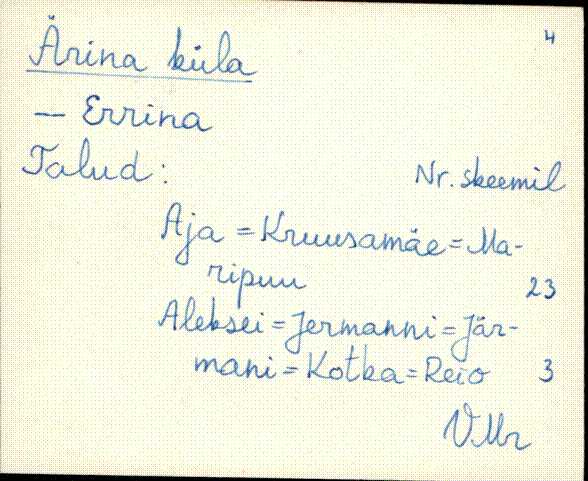 4
Ärina küla
— Errina
Talud:
Nr. skeemil
Aja = Kruusamäe = Ma-
ripuu 23
Aleksei = Jermanni = Jär-
mani = Kotka = Reio 3
VMr